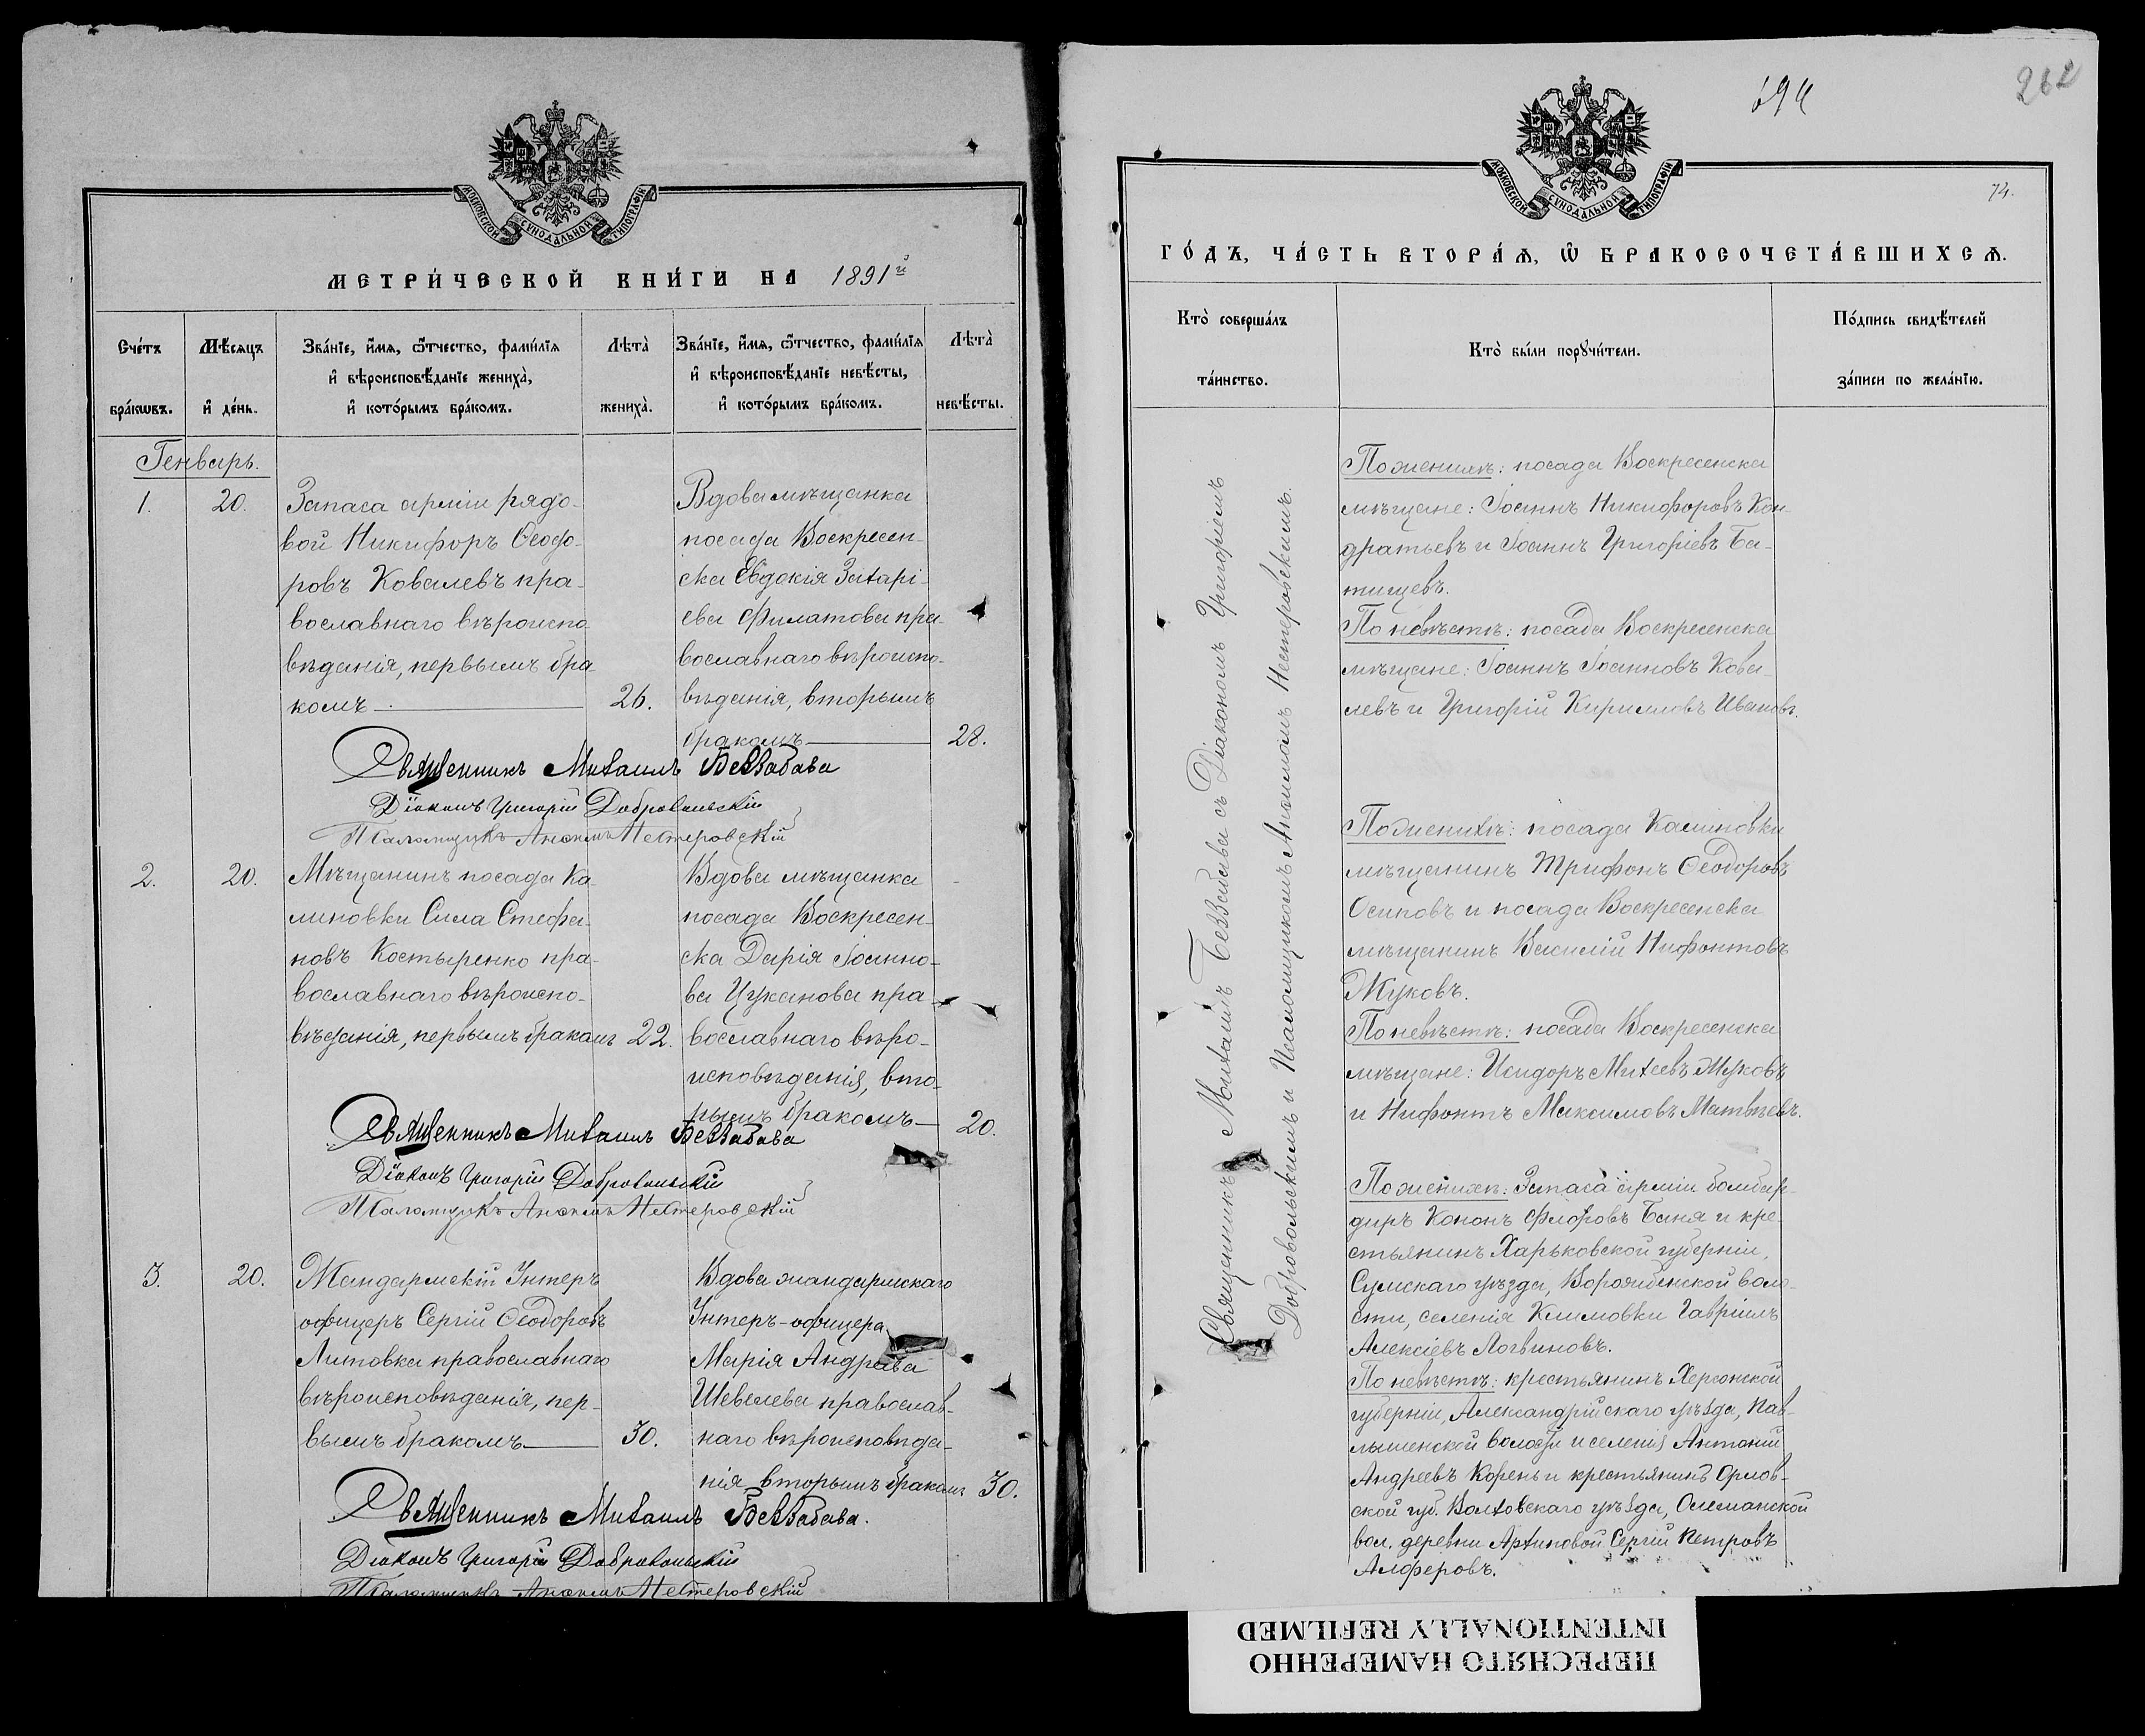 МОСКОВСКОЙ СѴНОДАЛЬНОЙ ТИПОГРАФІИ
МЕТРИ́ЧЕСКОЙ КНИ́ГИ НА 1891й
Сче́тъ бра́кѡвъ.
Мѣ́сяцъ и҆ де́нь.
Зва́нїе, и҆́мѧ, ѻ҆́тчество, фами́лїѧ
и҆ вѣроисповѣ́данїе жениха̀,
и҆ кото́рымъ бра́комъ.
Лѣта̀ жениха̀.
Зва́нїе, и҆́мѧ, ѻ҆́тчество, фами́лїѧ
и҆ вѣроисповѣ́данїе невѣ́сты,
и҆ кото́рымъ бра́комъ.
Лѣта̀ невѣ́сты.
Генварь.
1. 20.
Запаса арміи рядо-
вой Никифоръ Ѳеодо-
ровъ Ковалевъ пра-
вославнаго вѣроиспо-
вѣданія, первымъ бра
комъ — 26.
Вдова мѣщанка
посада Воскресен-
ска Евдокія Захарі-
ева Филатова пра-
вославнаго вѣроиспо-
вѣданія, вторымъ
бракомъ — 28.
Священникъ Михаилъ Беззабава
Діаконъ Григорій Добровольскій
Псаломщикъ Анѳимъ Нестеровскій
2. 20.
Мѣщанинъ посада Ка-
линовки Сила Стефа-
новъ Костыренко пра-
вославнаго вѣроиспо-
вѣданія, первымъ бракомъ 22.
Вдова мѣщанка
посада Воскресен-
ска Дарія Іоанно-
ва Цуканова пра-
вославнаго вѣро-
исповѣданія, вто-
рымъ бракомъ — 20.
Священникъ Михаилъ Беззабава
Діаконъ Григорій Добровольскій
Псаломщикъ Анѳимъ Нестеровскій
3. 20.
Жандармскій Унтеръ
офицеръ Сергій Ѳеодоровъ
Литовка православнаго
вѣроисповѣданія, пер-
вымъ бракомъ — 30.
Вдова жандармскаго
Унтеръ-офицера
Марія Андреева
Шевелева православ-
наго вѣроисповѣда-
нія, вторымъ бракомъ 30.
Священникъ Михаилъ Беззабава.
Діаконъ Григорій Добровольскій
Псаломщикъ Анѳимъ Нестеровскій
694
262
74.
МОСКОВСКОЙ СѴНОДАЛЬНОЙ ТИПОГРАФІИ
ГО́ДЪ, ЧА́СТЬ ВТОРА́Ѧ, Ѡ҆ БРАКОСОЧЕТА́ВШИХСѦ.
Кто̀ соверша́лъ
та́инство.
Кто̀ бы́ли порꙋчи́тели.
По́дпись свидѣ́телей
за́писи по жела́нїю.
Священникъ Михаилъ Беззабава съ Діакономъ Григоріемъ
Добровольскимъ и Псаломщикомъ Анѳимомъ Нестеровскимъ.
По женихѣ: посада Воскресенска
мѣщане: Іоаннъ Никифоровъ Кон-
дратьевъ и Іоаннъ Григоріевъ Ба-
тищевъ.
По невѣстѣ: посада Воскресенска
мѣщане: Іоаннъ Іоанновъ Кова-
левъ и Григорій Кирилловъ Ивановъ.
По женихѣ: посада Калиновки
мѣщанинъ Трифонъ Ѳеодоровъ
Осиповъ и посада Воскресенска
мѣщанинъ Василій Нифонтовъ
Жуковъ.
По невѣстѣ: посада Воскресенска
мѣщане: Исидоръ Михеевъ Жуковъ
и Нифонтъ Максимовъ Матвѣевъ.
По женихѣ: Запаса арміи бомбар-
диръ Кононъ Флоровъ Баня и кре-
стьянинъ Харьковской губерніи,
Сумскаго уѣзда, Ворожбянской воло-
сти, селенія Климовки Гавріилъ
Алексіевъ Логвиновъ.
По невѣстѣ: крестьянинъ Херсонской
губерніи, Александрійскаго уѣзда, Пав-
лышенской волости и селенія Антоній
Андреевъ Корень и крестьянинъ Орлов-
ской губ. Волховскаго уѣзда,
вол. деревни Сергій Петровъ
Алферовъ.
ПЕРЕСНЯТО НАМЕРЕННО
INTENTIONALLY REFILMED